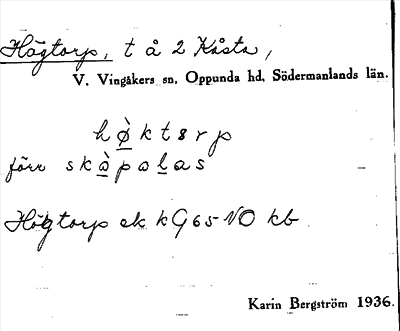 Högtorp, t å 2 Kåsta,
V. Vingåkers sn. Oppunda hd. Södermanlands län.
hø̀ktsrp
förr skàpalas
Högtorp ek kG65 NO kb
Karin Bergström 1936.